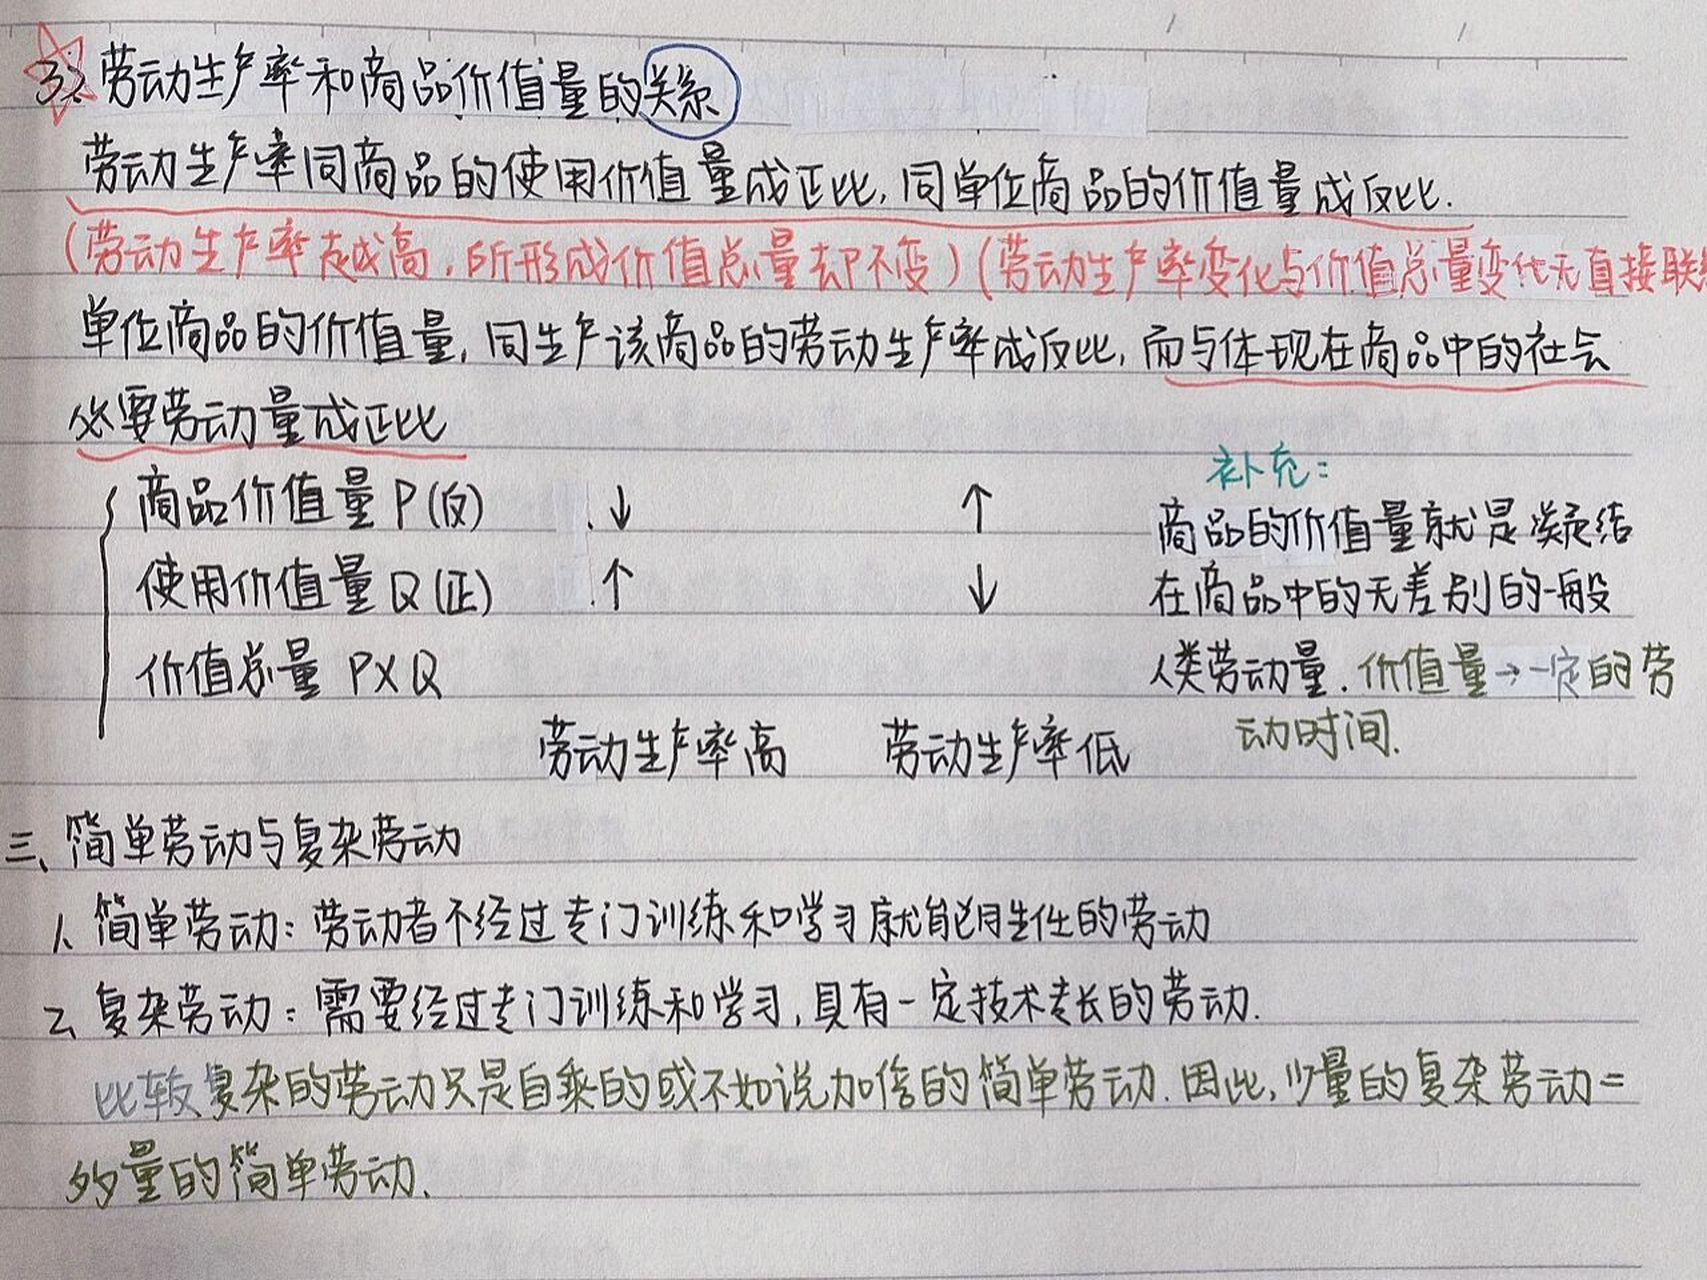 3、劳动生产率和商品价值量的关系
劳动生产率同商品的使用价值量成正比,同单位商品的价值量成反比.
(劳动生产率越高,所形成价值总量却不变)(劳动生产率变化与价值总量变化无直接联
单位商品的价值量,同生产该商品的劳动生产率成反比,而与体现在商品中的社会
必要劳动量成正比
商品价值量 P(反) ↓ ↑
使用价值量 Q(正) ↑ ↓
价值总量 P×Q
劳动生产率高 劳动生产率低
补充:
商品的价值量就是凝结
在商品中的无差别的一般
人类劳动量.价值量→一定的劳
动时间.
三、简单劳动与复杂劳动
1、简单劳动:劳动者不经过专门训练和学习就能胜任的劳动
2、复杂劳动:需要经过专门训练和学习,具有一定技术专长的劳动.
比较复杂的劳动只是自乘的或不如说加倍的简单劳动.因此,少量的复杂劳动=
多量的简单劳动.